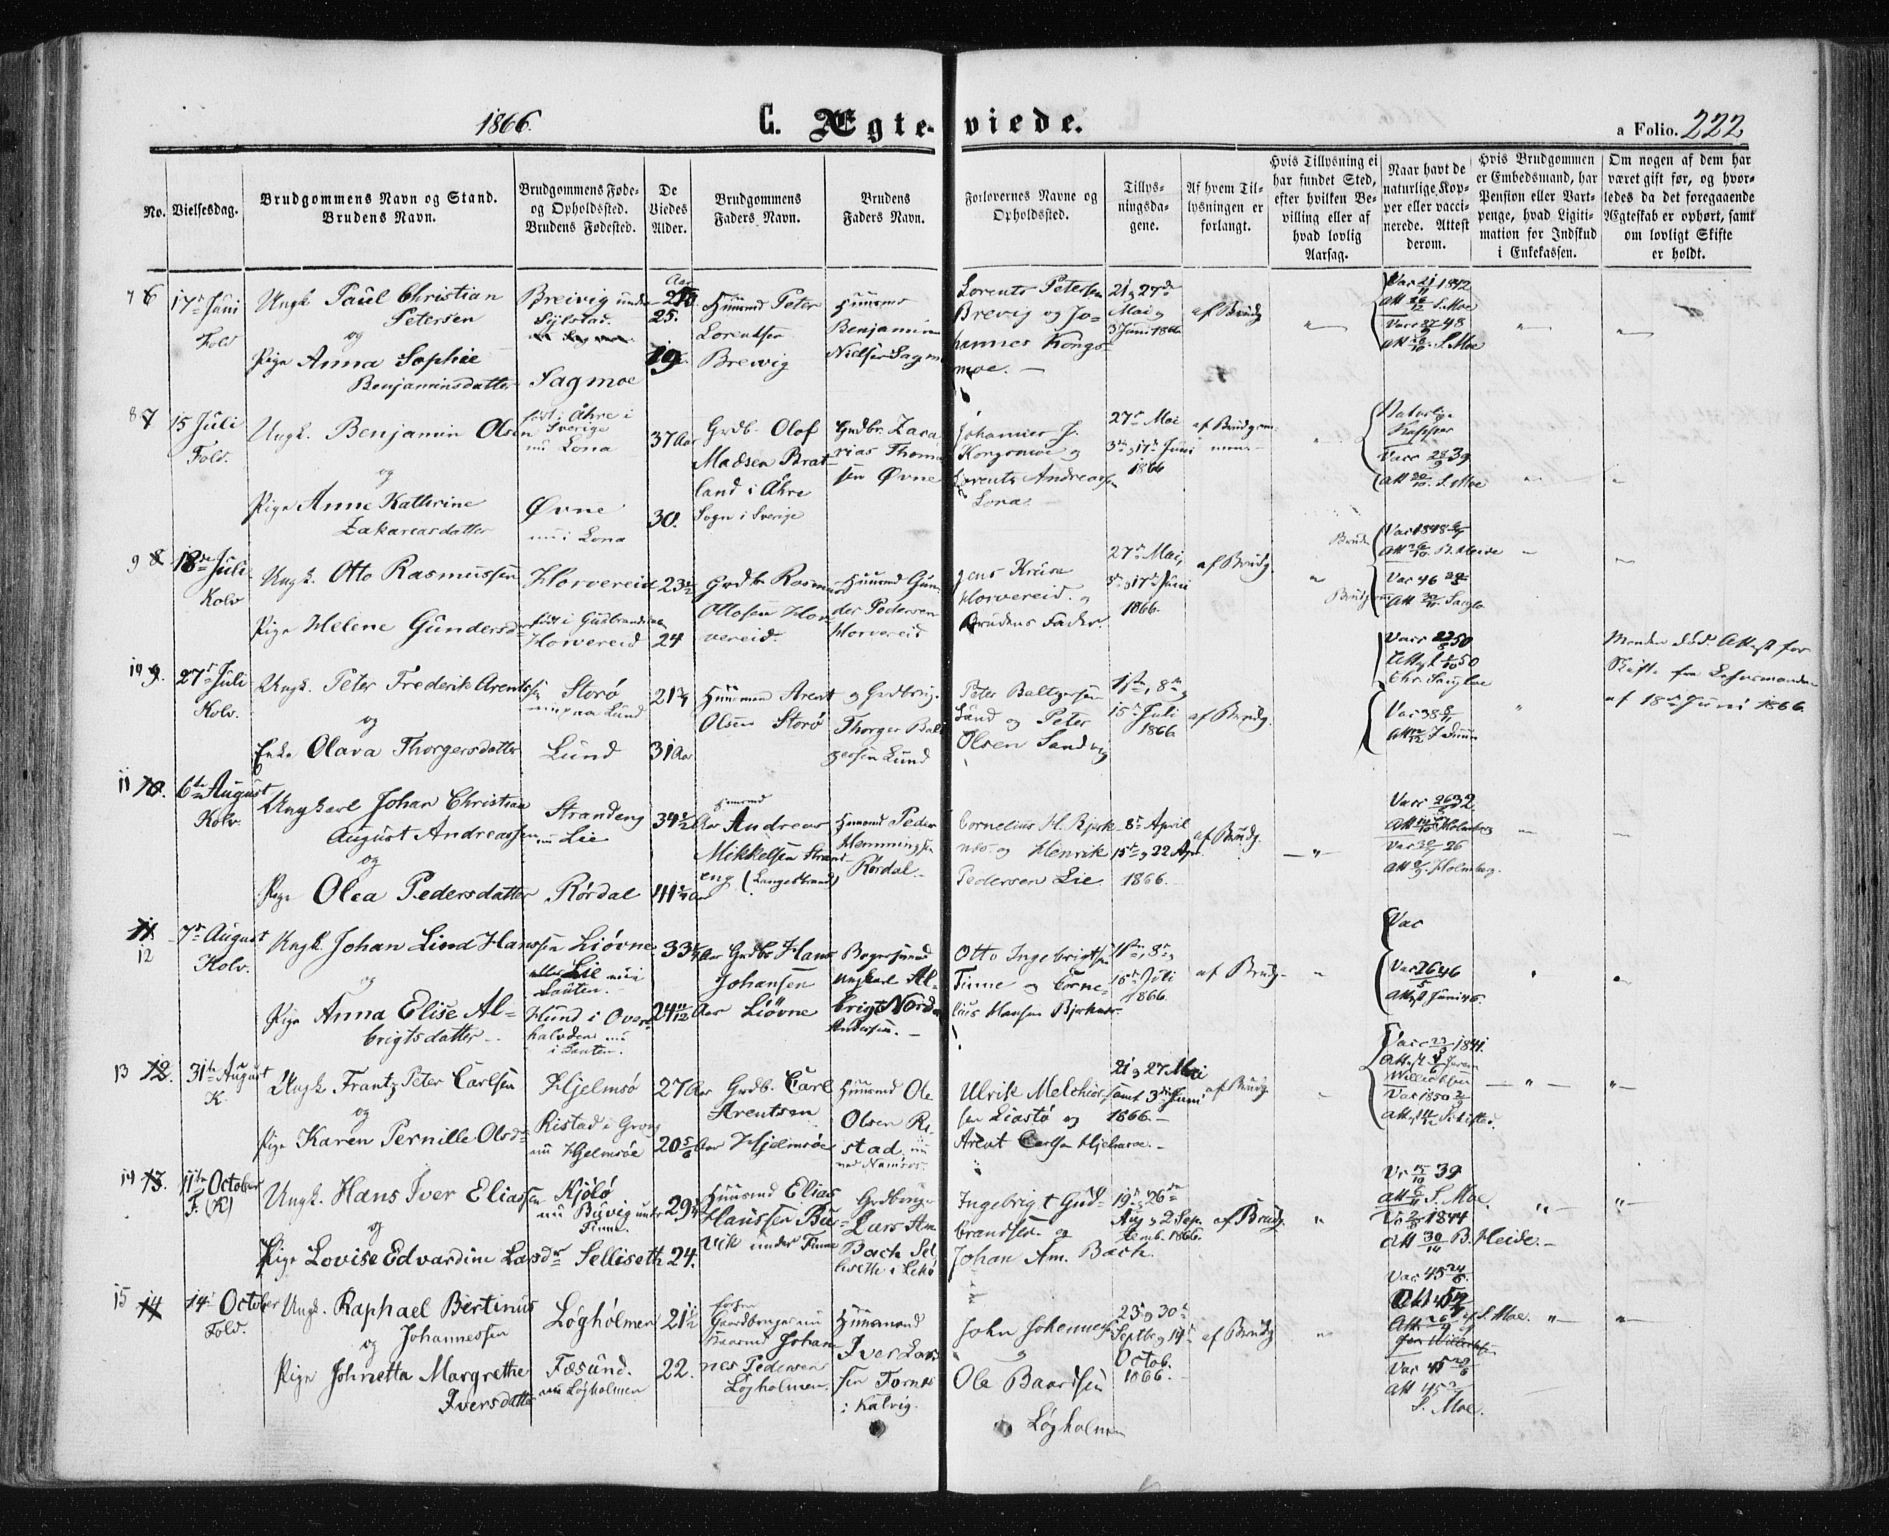 1866.
C. Ægteviede.
a Folio. 222
No.
Vielsesdag.
Brudgommens Navn og Stand.
Brudens Navn.
Brudgommens Føde-
og Opholdssted.
Brudens Fødested.
De
Viedes
Alder.
Brudgommens
Faders Navn.
Brudens
Faders Navn.
Forlovernes Navne og
Opholdssted.
Tillys-
ningsda-
gene.
Af hvem Til-
lysningen er
forlangt.
Hvis Tillysning ei
har fundet Sted,
efter hvilken Be-
villing eller af
hvad lovlig
Aarsag.
Naar havt de
naturlige Kop-
per eller vacci-
nerede. Attest
derom.
Hvis Brudgommen
er Embedsmand, har
Pension eller Vart-
penge, hvad Ligiti-
mation for Indskud
i Enkekassen.
Om nogen af dem har
været gift før, og hvor-
ledes da det foregaaende
Ægteskab er ophørt, samt
om lovligt Skifte
er holdt.
7 6
17de Juni
Fold
Ungk. Paul Christian
Petersen
og
Pige Anna Sophie
Benjaminsdatter
Breivig under
Sagmoe
Aar
25.
19
Huusmd Peter
Lorentsen
Brevig
Huusmd
Benjamin
Nielsen Sagmo
Lorents Petersen
Brevig og Jo-
hannes Kongs-
moe. -
21 og 27de
Mai og
3 Juni 1866
af Brudg
Vac 21/11 1842
Att S. Moe
Vacc 48
Att S. Moe
8 7
15 Juli
Fold.
Ungk. Benjamin Olsen
og
Pige Anne Kathrine
Zakariasdatter
født i Åhre i
Sverige
nu Lona
Øvne
nu i Lona
37 Aar
30.
Grdb. Olof
Madsen Brat-
land i Åhre
Sogn i Sverige
Grdbr. Zaca-
rias Thoma-
sen Øvne
Johannes J.
Kongsmoe og
Lorents Andreassen
Lona.
27de Mai
3die og 17de Juni
1866
af Brudgom-
men -
Naturlige
Kopper
Vacc 39
Att S. Moe
9 8
18de Juli
Kolv
Ungk. Otto Rasmussen
Pige Helene Gundersd.
Horvereid
født i Gudbrandsdalen
Horvereid
23½
24
Grdbr Rasmus
Ottosen Hor-
vereid.
Huusmd Gun-
der Pedersen
Horvereid
Jens Kruse
Horvereid. og
Brudens Fader.
27de Mai,
3die og 17de Juni
1866.
af Brudg.
Brude
Vac 1848
Att B. Heide
Brudgom
Vac 46
Att Sanglo
10 9.
27de Juli
Kolv.
Ungk. Peter Frederik Arentssen
og
Enke Olava Thorgersdatter
Storø
nu paa Lund
Lund
21¾
31 Aar
Huusmand Arent
Olsen Storø
Grdbrug.
Thorger Balt-
zersen Lund
Peter Baltzersen
Lund og Peter
Olsen Sandvig
1ste, 8de og
15de Juli
1866
af Brudg.
Vacc 50
Attest 50
Chr. Sangloe
Vac 38
Manden død. Attest for
Skifte fra Lehnsmanden
af 18de Juni 1866.
11 10.
6te August
Kolv.
Ungkarl Johan Christian
August Andreassen
og
Pige Olea Pedersdatter
Strandeng
nu Lie
Rørdal
34
41
Huusmd
Andreas
Mikkelsen Strand-
eng (Langestrand)
Huusmd Peder
Hemmingsen
Rørdal. -
Cornelius H. Bjerk-
næs og Henrik
Pedersen Lie
8de April
15de og 22 Apr.
1866. -
af Brudg.
Vacc 26 32
Att Holmberg
Vac 26
Att Holmberg.
11
12
7de August
Kolv.
Ungk. Johan Lind Hanssen
og
Pige Anna Elise Al-
brigtsdatter -
Liøvne
eller Lie nu i
Sauten. -
Hund i Over-
halvden nu
i Sauten.
33
24
Grdbr Hans
Johansen
Liøvne
Ungkarl Al-
brigt Nordn
Andersen. -
Otto Ingebrigtsen
Finne og Corne-
lius Hansen Bjerknes
1ste, 8de og
15de Juli
1866.
af Brudg.
Vac
Vac 26/5 46
Attest Juni 46.
13 12.
31te August
K.
Ungk. Frantz Peter Carlsen
og
Pige Karen Pernille Olsdr
Hjelmsø
Ristad i Grong
nu Hjelmsøe
27 Aar
20 5/6 Aar
Grdb. Carl
Arentsen
Hjelmsøe
Huusmd Ole
Olsen Ri-
stad, nu
ved Namsos.
Ulrik Melchior-
sen Liastø og
Arent Carlsen Hjelmsøe. -
21 og 27 Mai
samt 3die Juni
1866. -
af Brudg
Vac 1841.
Attest
Vac 1850
14 13.
11te October
F. (K)
Ungk. Hans Iver Eliassen
og
Pige Lovise Edvardine Larsdr
Kjølø
nu Buvig under
Finne.
Selliseth
29
24.
Huusmd Elias
Hanssen Bu-
vik under Finne
Grdbruger
Lars Am.
Bach Sel-
liseth i Lekø
Ingebrigt Gud-
brandsen og
Johan Am. Bach.
19de, 26de
Aug. og 2 Sep-
temb. 1866.
af Brudg.
Vc 39
Att S. Moe.
Vc 1844
Att 30/10 B. Heide. -
15 14
14de October
Fold.
Ungk. Raphael Bertinus
og Johannessen
Pige Johnetta Margrethe
Iversdatter
Løgholmen
Fæsund.
nu Løgholmen
21½
22.
Gaardbruger nu
Huusmd Johan-
nes Pedersen
Løgholmen.
Huusmand
Iver Lars-
sen Tornes
i Kalvig.
John Johannes
og
Ole Baardsen
Løgholmen
23 og 30te
Septb. og 14de
Octob.
1866. -
af Brudg
Vac 45
Att S. Moe.
Vac 45
Att 45
S. Moe.